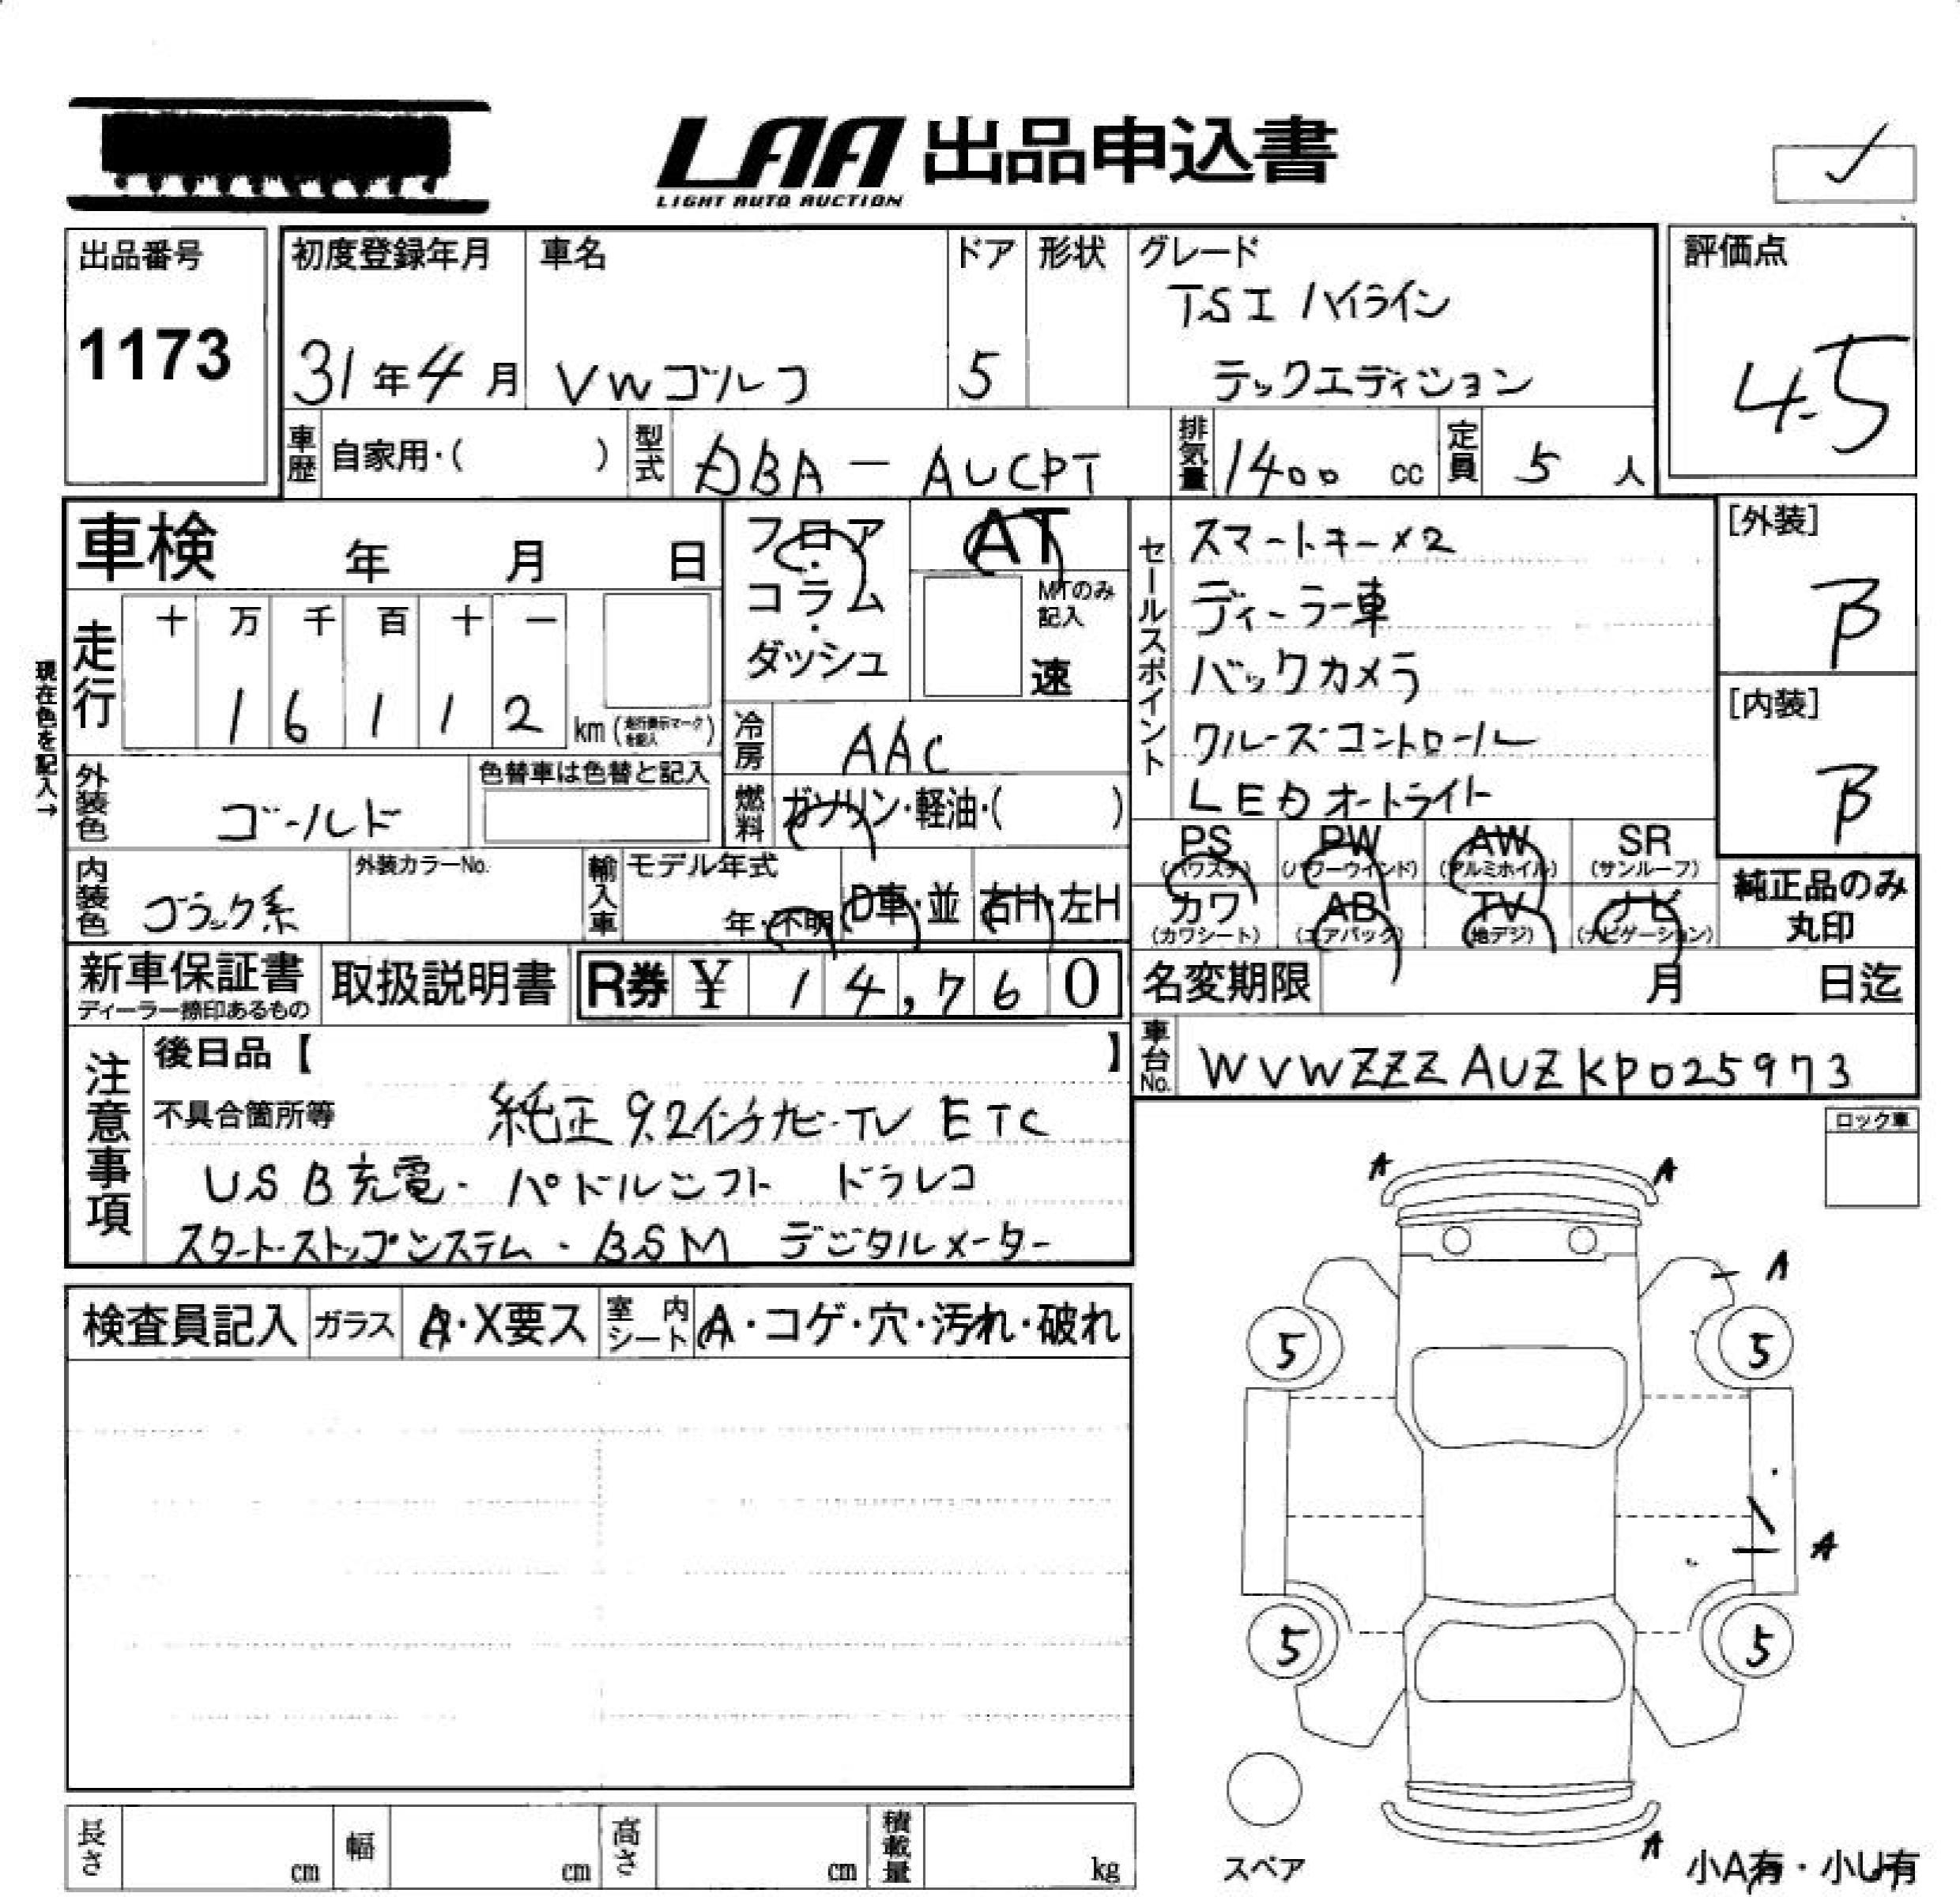 LAA 出品申込書
LIGHT AUTO AUCTION
出品番号
1173
初度登録年月
31年4月
車名
VWゴルフ
ドア
5
形状
グレード
TSI ハイライン
テックエディション
評価点
4.5
車歴 自家用・( )
型式 DBA-AUCPT
排気量 1400 cc
定員 5 人
車検 年 月 日
走行 十 万 千 百 十 一
1 6 1 1 2 km (走行表示マークを記入)
現在色を記入→
外装色 ゴールド
色替車は色替と記入
内装色 ブラック系
外装カラーNo.
フロア・コラム・ダッシュ
AT
MTのみ記入
速
冷房 AAC
燃料 ガソリン・軽油・( )
輸入車 モデル年式
年・不明 D車・並 右H・左H
セールスポイント
スマートキー×2
ディーラー車
バックカメラ
クルーズコントロール
LEDオートライト
[外装]
B
[内装]
B
PS (パワステ) PW (パワーウインド) AW (アルミホイル) SR (サンルーフ)
カワ (カワシート) AB (エアバック) TV (地デジ) ナビ (ナビゲーション)
純正品のみ丸印
新車保証書
ディーラー捺印あるもの
取扱説明書
R券 ¥ 14,760
名変期限 月 日迄
車台No. WVWZZZAUZKP025973
注意事項
後日品【 】
不具合箇所等 純正9.2インチナビ・TV ETC
USB充電・パドルシフト ドラレコ
スタートストップシステム・BSM デジタルメーター
ロック車
検査員記入 ガラス A・X要ス 室内シート A・コゲ・穴・汚れ・破れ
A A
A
5 5
A
5 5
A
スペア
小A有・小U有
長さ cm 幅 cm 高さ cm 積載量 kg